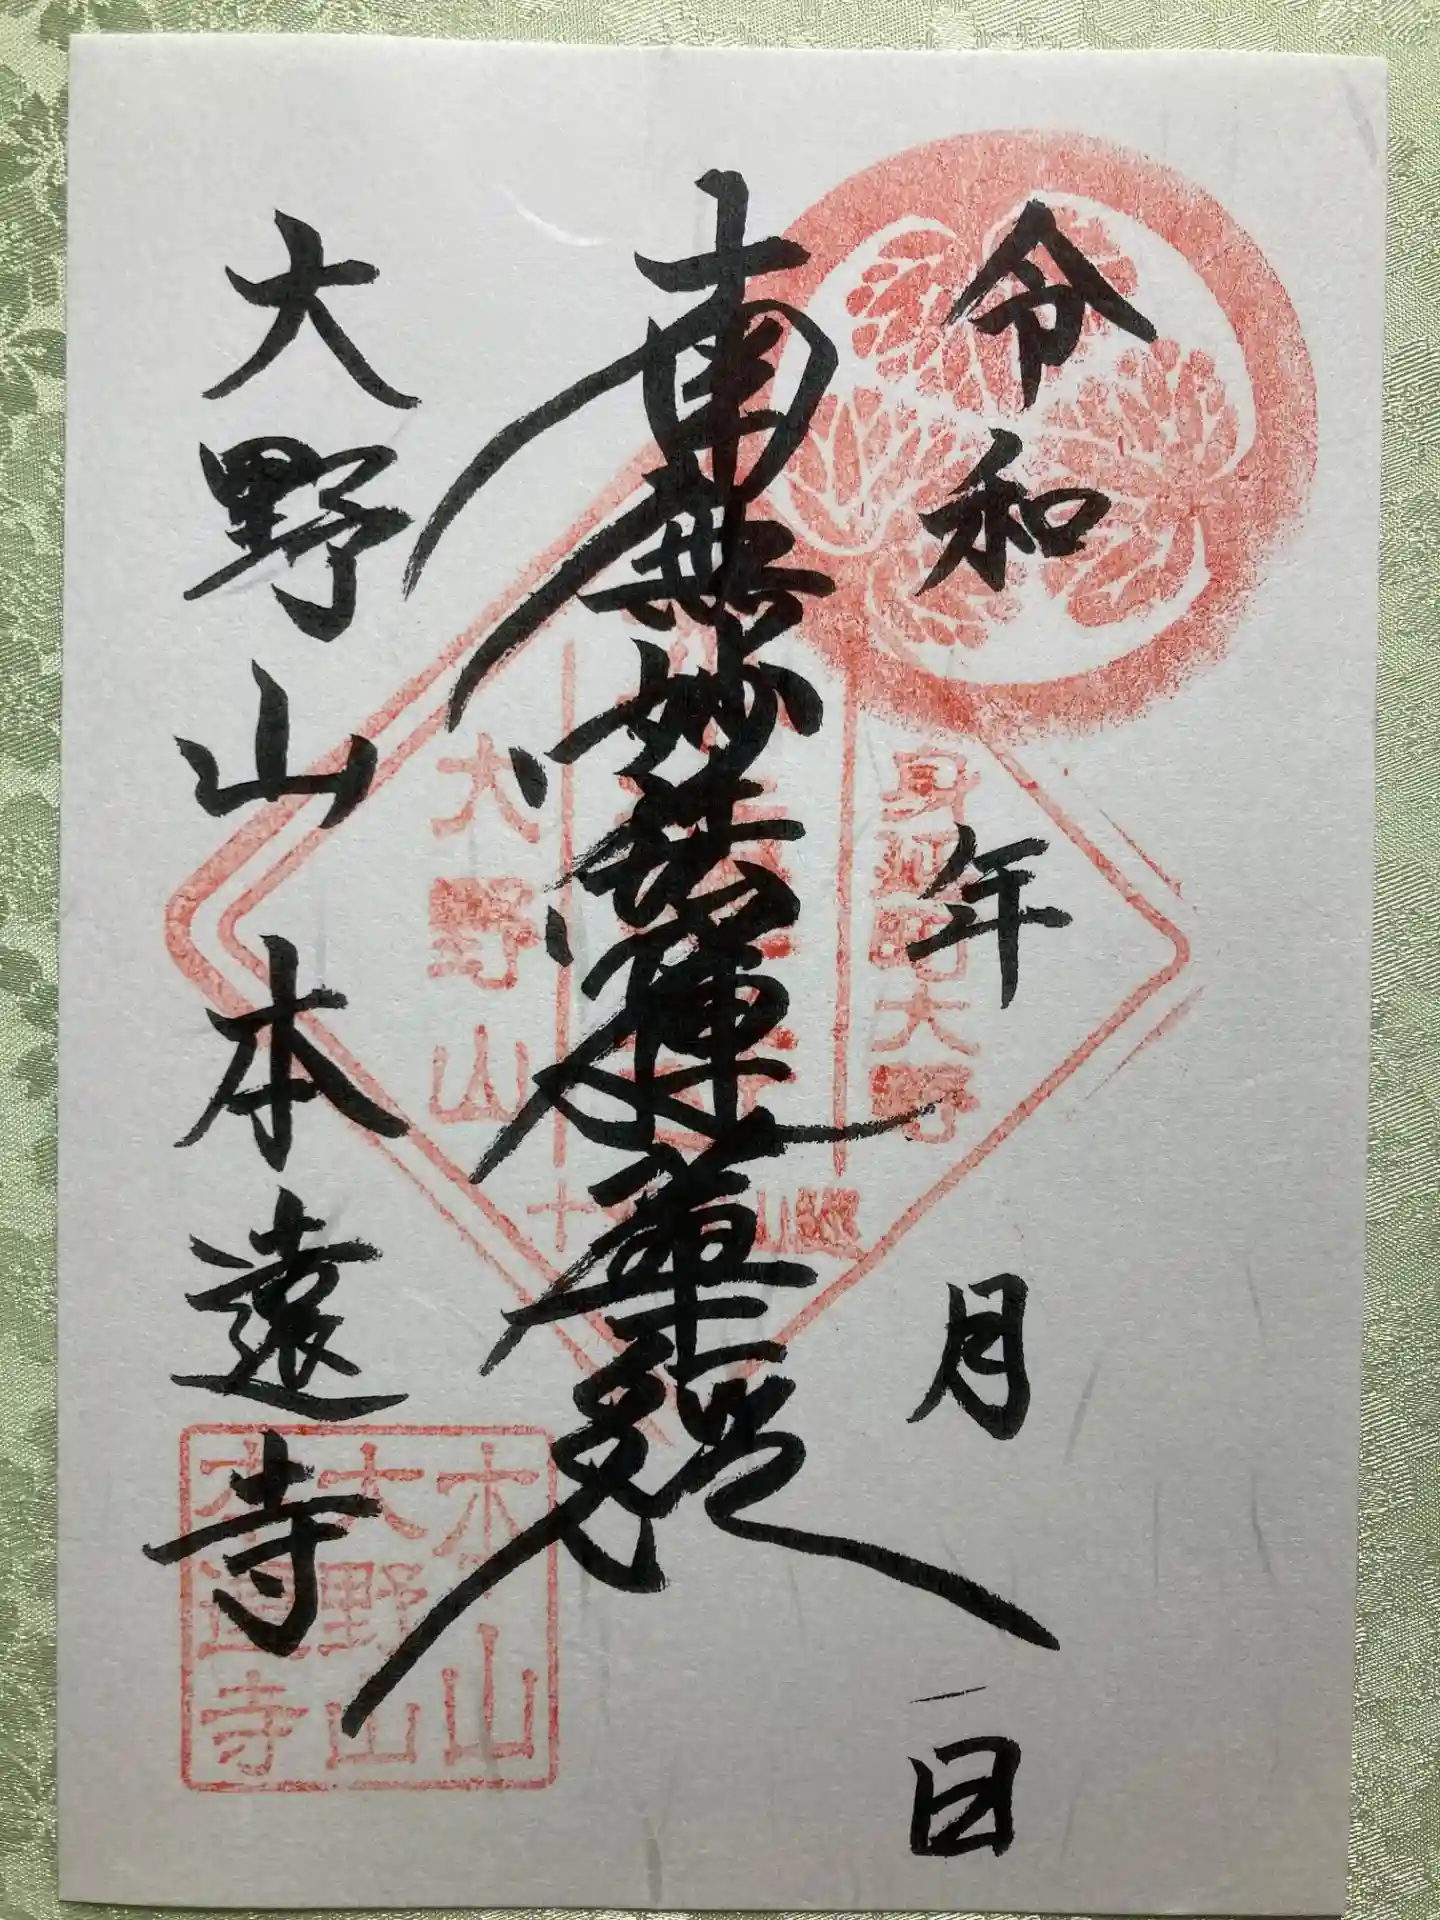 令和 年 月 日
南無妙法蓮華経
大野山本遠寺
身延町大野
大野山
本山
大野山
本遠寺